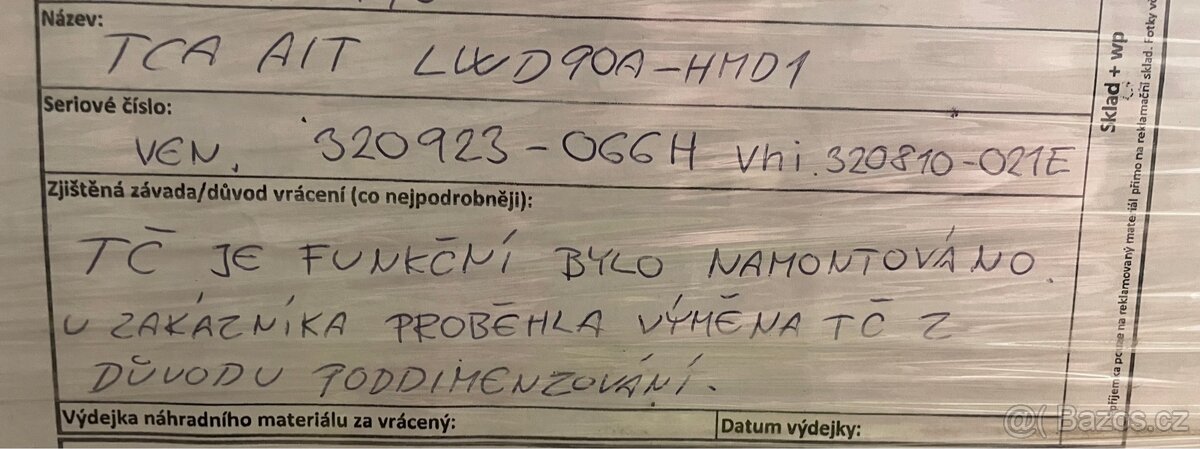 Název:
TCA AIT LWD90A-HMD1
Seriové číslo:
VEN. 320923-066H Vhi.320810-021E
Zjištěná závada/důvod vrácení (co nejpodrobněji):
TČ JE FUNKČNÍ BYLO NAMONTOVÁNO.
U ZAKÁZNÍKA PROBĚHLA VÝMĚNA TČ Z
DŮVODU PODDIMENZOVÁNÍ.
Výdejka náhradního materiálu za vrácený:
Datum výdejky:
Sklad + wp
na reklamovaný materiál přímo na reklamační sklad. Fotky
Bazos.cz